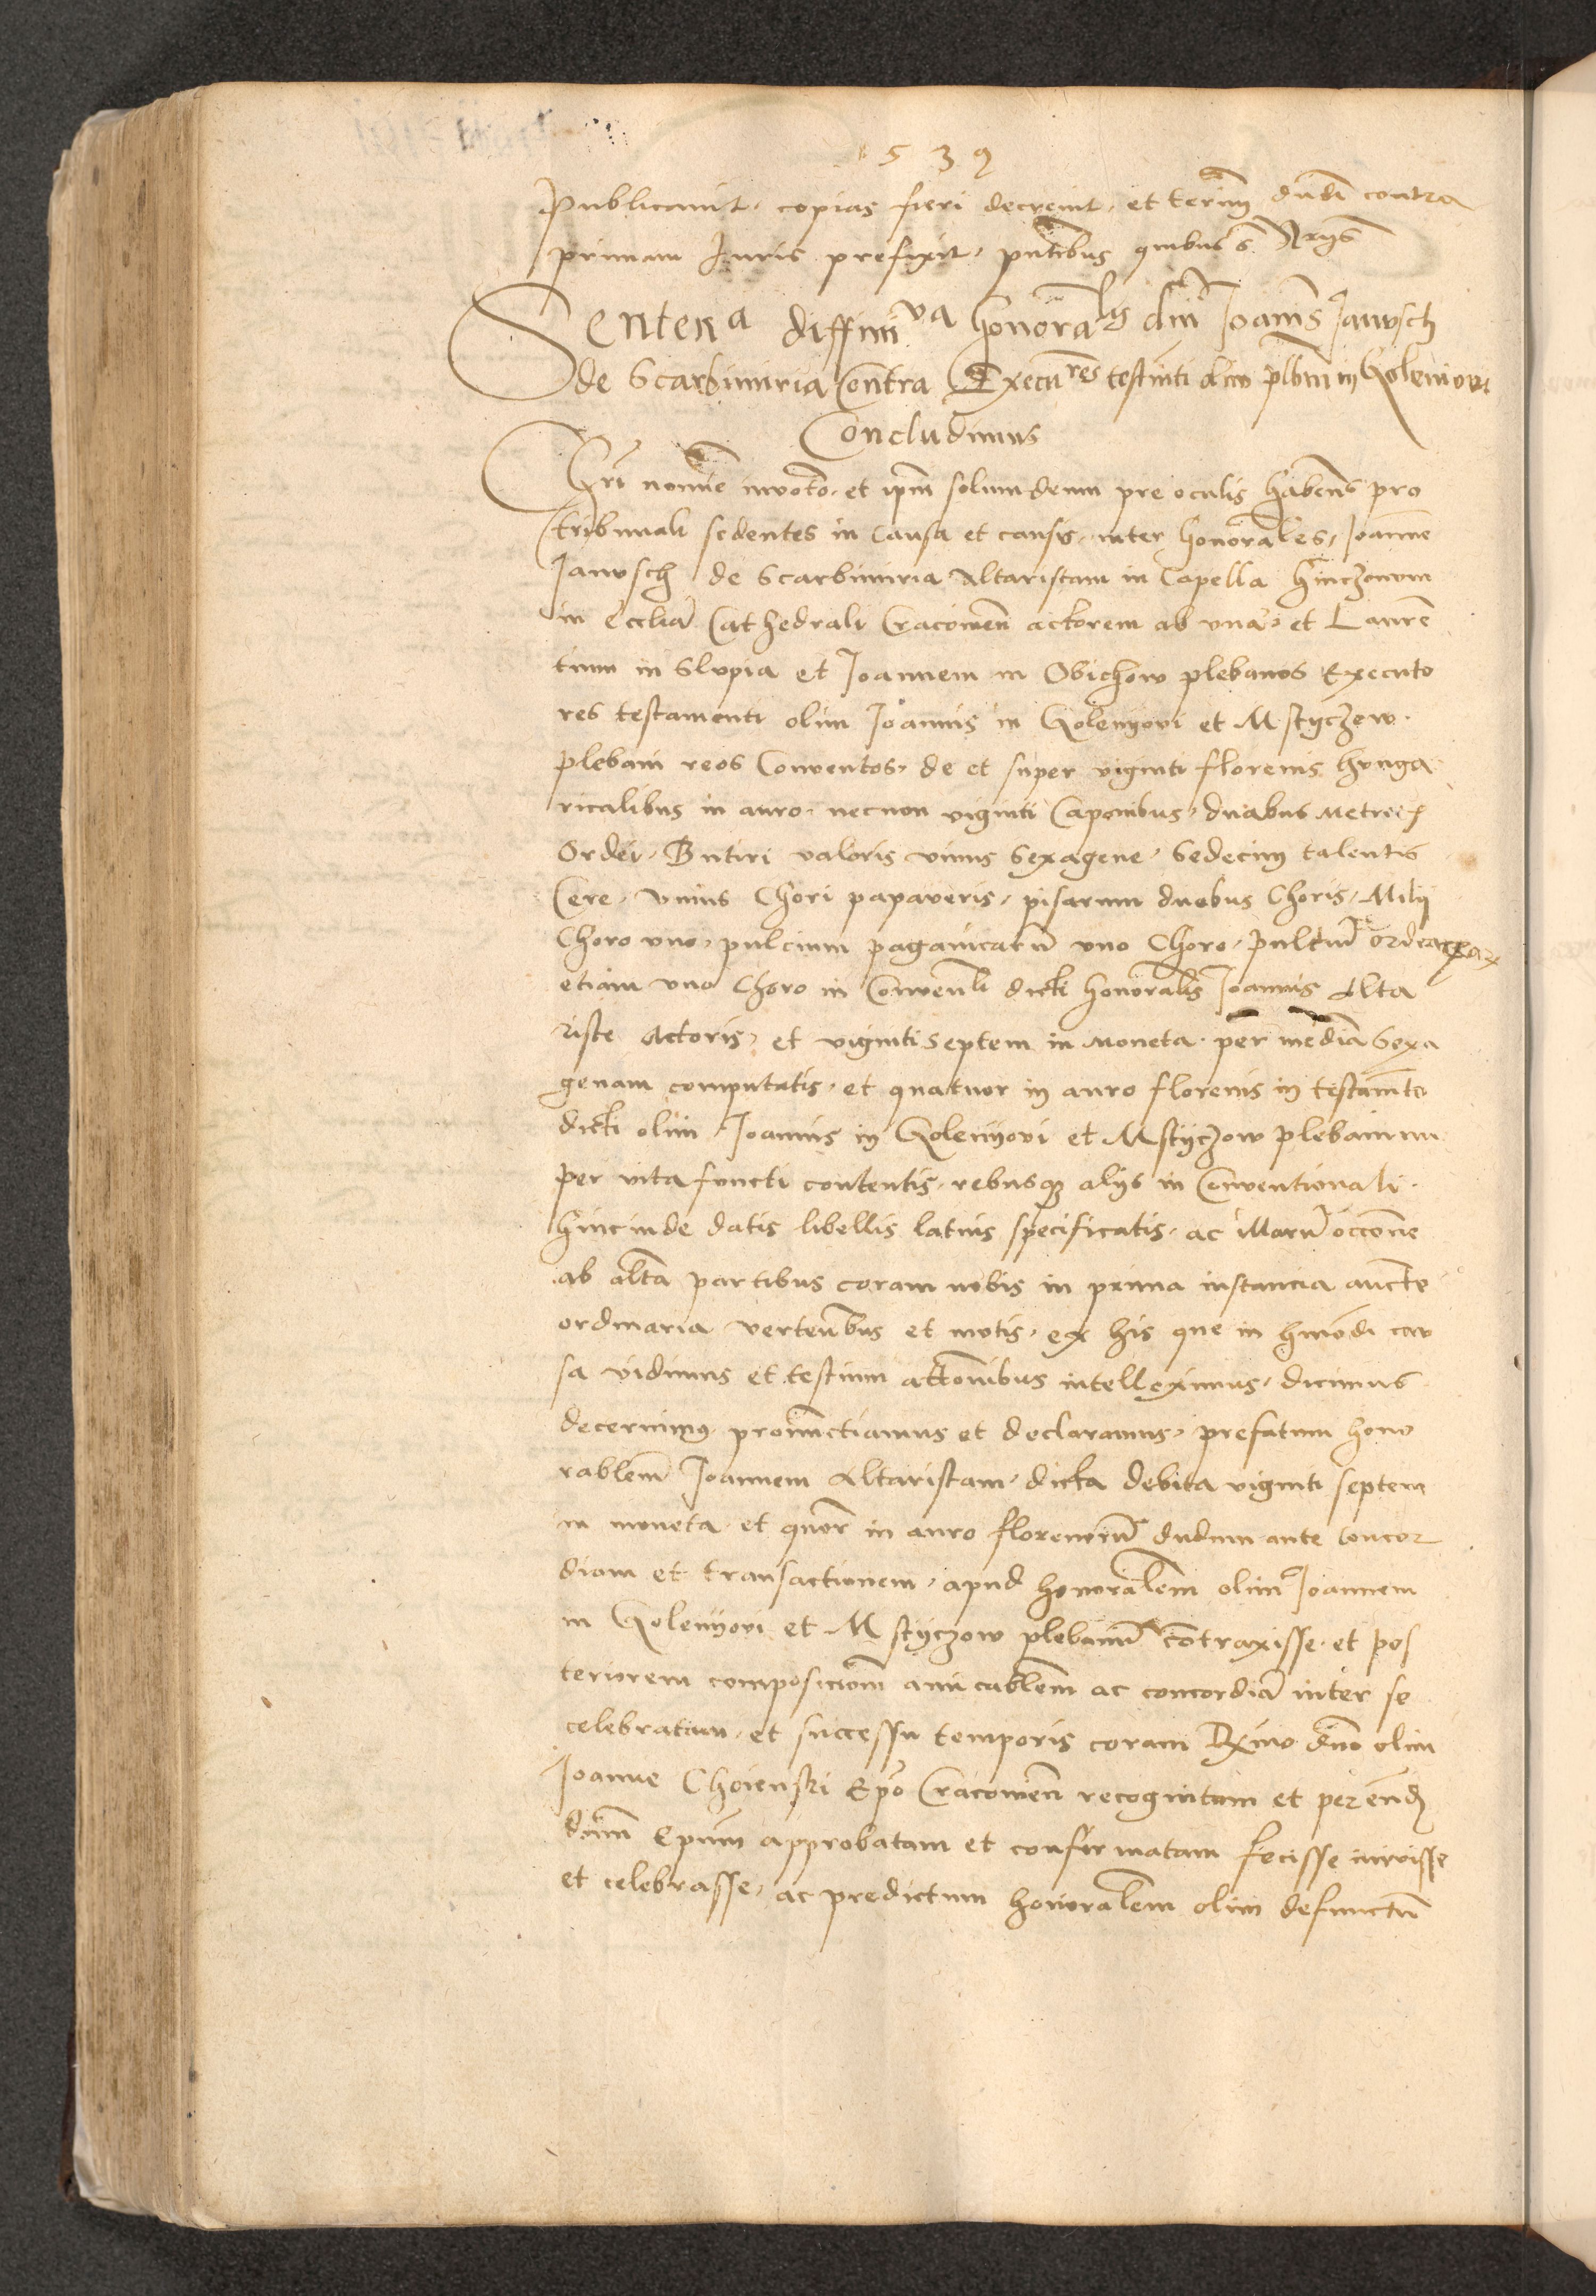 1539
Publicavit, copias fieri decrevit, et termin dndi contra
primam Iuris prefixit, pntibus quibus s. Notarijs
Sentena diffinitiva honoralis dni Ioannis Janusch
de Scarbimiria Contra Execures testmti olim plbni in Goleniovi
Concludimus
Cri nomine invocto, et ipm solum deum pre oculis habens pro
tribunali sedentes in Causa et causis, inter honorabiles, Ioanne
Janusch de Scarbimiria Altaristam in Capella hinczonum
in Ecclia Cathedrali Cracovien actorem ab una, et Lauren
tium in Slupia et Joannem in Obichow plebanos Executo
res testamenti olim Joannis in Golenyovi et Mstyczow
plebani reos Conventos, de et super viginti florenis hunga
ricalibus in auro, necnon viginti Caponibus, duabus Metretis
Ordei, Butiri valoris unius Sexagene, Sedecim talentis
Cere, unius Chori papaveris, pisarum duobus Choris, Milij
Choro uno, pulcium paganicaru uno Choro, pultium ordeacear
etiam uno Choro in Conventi dicti honoralis Joannis Alta
riste Actoris, et viginti septem in Moneta per media Sexa
genam computatis, et quatuor in auro florenis in testamto
dicti olim Joannis in Golenyovi et Mstyczow plebani
per vita functi contentis, rebusque alijs in Conventionali
hincinde datis libellis latius specificatis, ac illaru occone
ab alta partibus coram nobis in prima instancia aucte
ordinaria vertentibus et motis, ex his que in hmodi cau
sa vidimus et testium attonibus intelleximus, dicimus
decernimus pronunctiamus et declaramus, prefatum hono
rablem Joannem Altaristam, dicta debita viginti septem
in moneta et quor in auro florenoru dudum ante concor
diam et transactionem, apud honoralem olim Joannem
in Golenyovi et Mstyczow plebanu contraxisse, et pos
teriorem composiconem amicablem ac concordia inter se
celebratam, et successu temporis coram Rxmo dno olim
Joanne Choienski Epo Cracovien recognitam et per eund
dnm Epum approbatam et confirmatam fecisse inivisse
et celebrasse, ac predictum honoralem olim defunctu